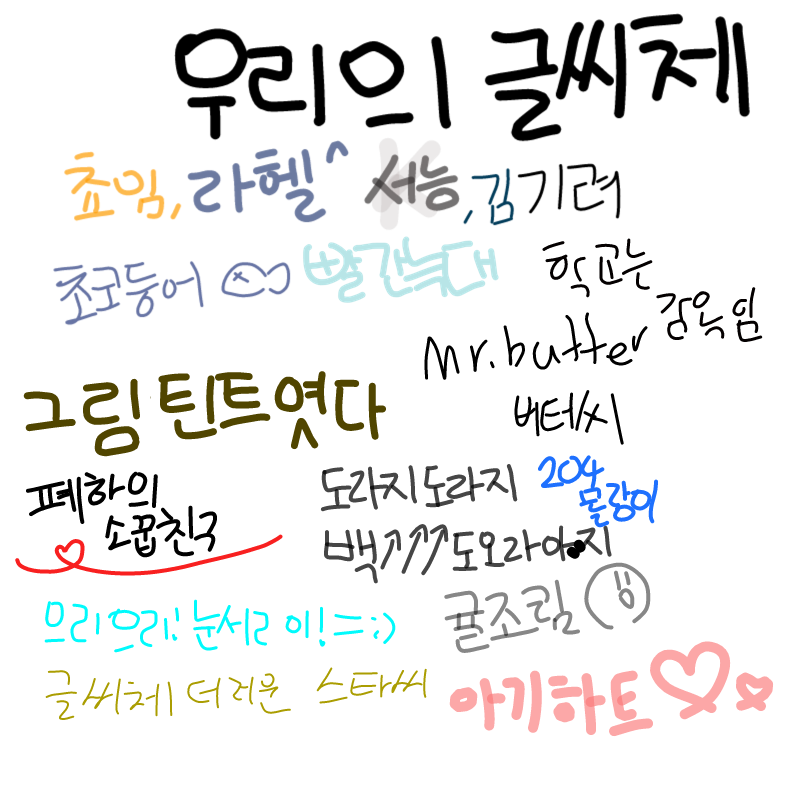 우리의 글씨체
쵸밈, 라헬^ 서능, 김기려
초코둥어 빨간늑대 학교는
감옥임
Mr.butter
그림틴트였다 버터씨
폐하의 도라지도라지 204
몰랑이
소꿉친구 백↗↗↗도오라아지
므리므리!눈서리 이!=;) 귤조림
글씨체 더러운 스타씨 아기하트♡♡